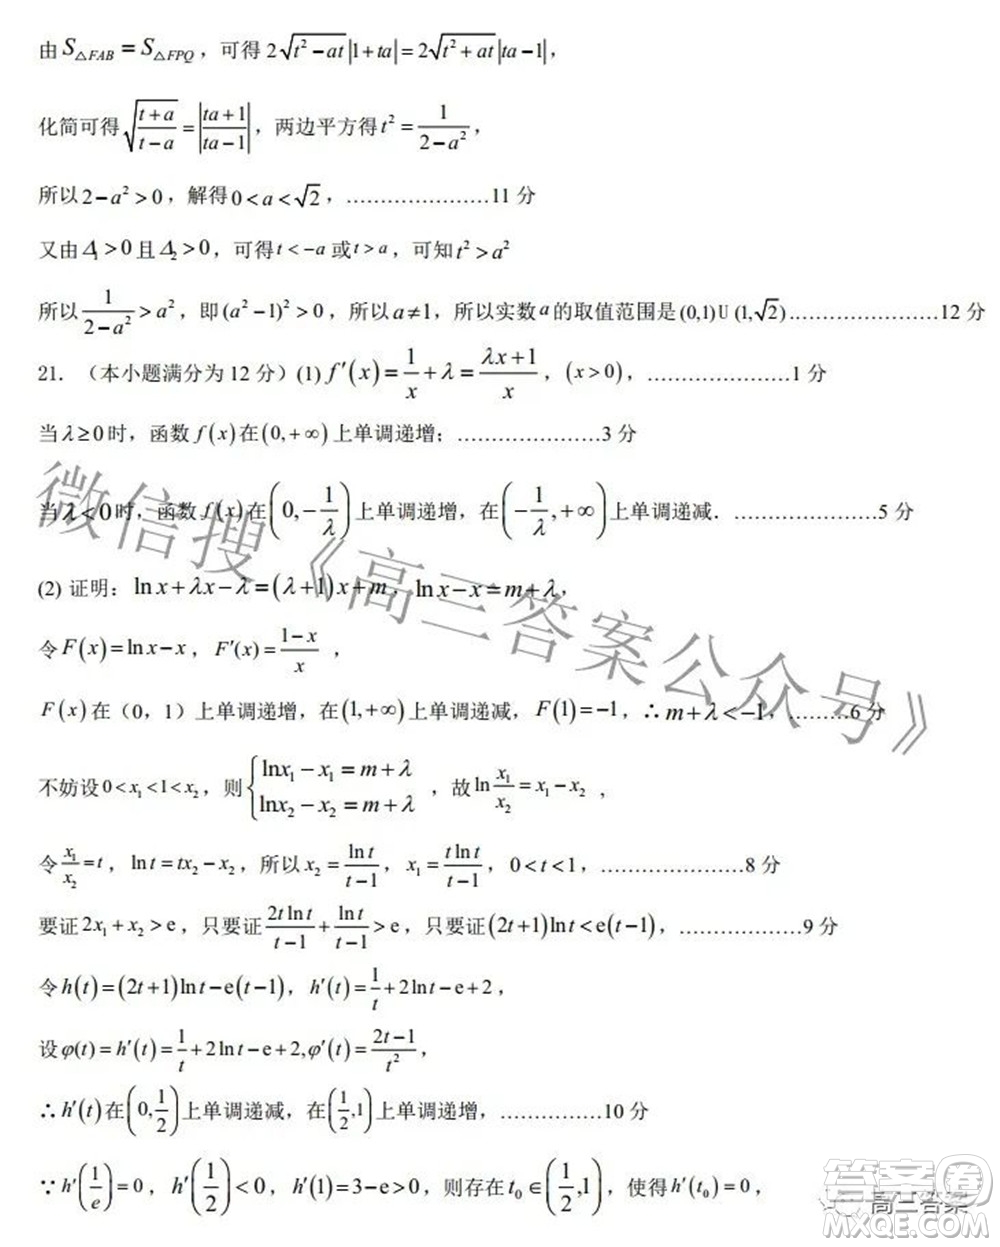 由 S△FAB = S△FPQ，可得 2√(t²−at)|1+ta| = 2√(t²+at)|ta−1|，
化简可得 √((t+a)/(t−a)) = |(ta+1)/(ta−1)|，两边平方得 t² = 1/(2−a²)，
所以 2−a² > 0，解得 0 < a < √2，.....................11 分
又由 Δ₁ > 0 且 Δ₂ > 0，可得 t < −a 或 t > a，可知 t² > a²
所以 1/(2−a²) > a²，即 (a²−1)² > 0，所以 a ≠ 1，所以实数 a 的取值范围是 (0,1) U (1,√2)......................12 分
21．（本小题满分为 12 分）(1) f′(x) = 1/x + λ = (λx+1)/x，(x > 0)，.....................1 分
当 λ ≥ 0 时，函数 f(x) 在 (0,+∞) 上单调递增；.....................3 分
当 λ < 0 时，函数 f(x) 在 (0,−1/λ) 上单调递增，在 (−1/λ,+∞) 上单调递减．.....................5 分
(2) 证明：ln x + λx − λ = (λ+1)x + m，ln x − x = m + λ，
令 F(x) = ln x − x，F′(x) = (1−x)/x ，
F(x) 在（0，1）上单调递增，在 (1,+∞) 上单调递减，F(1) = −1，∴ m + λ < −1，.........6 分
不妨设 0 < x₁ < 1 < x₂，则 { lnx₁ − x₁ = m + λ
lnx₂ − x₂ = m + λ ，故 ln x₁/x₂ = x₁ − x₂ ，
令 x₁/x₂ = t，ln t = tx₂ − x₂，所以 x₂ = ln t/(t−1)，x₁ = t ln t/(t−1)，0 < t < 1，.....................8 分
要证 2x₁ + x₂ > e，只要证 2t ln t/(t−1) + ln t/(t−1) > e，只要证 (2t+1)ln t < e(t−1)，..................9 分
令 h(t) = (2t+1)ln t − e(t−1)，h′(t) = 1/t + 2ln t − e + 2，
设 φ(t) = h′(t) = 1/t + 2ln t − e + 2, φ′(t) = (2t−1)/t²，
∴ h′(t) 在 (0,1/2) 上单调递减，在 (1/2,1) 上单调递增，...............10 分
∵ h′(1/e) = 0，h′(1/2) < 0，h′(1) = 3 − e > 0，则存在 t₀ ∈ (1/2,1)，使得 h′(t₀) = 0，
微信搜《高三答案公众号》
答案圈
MXQE.COM
高三答案